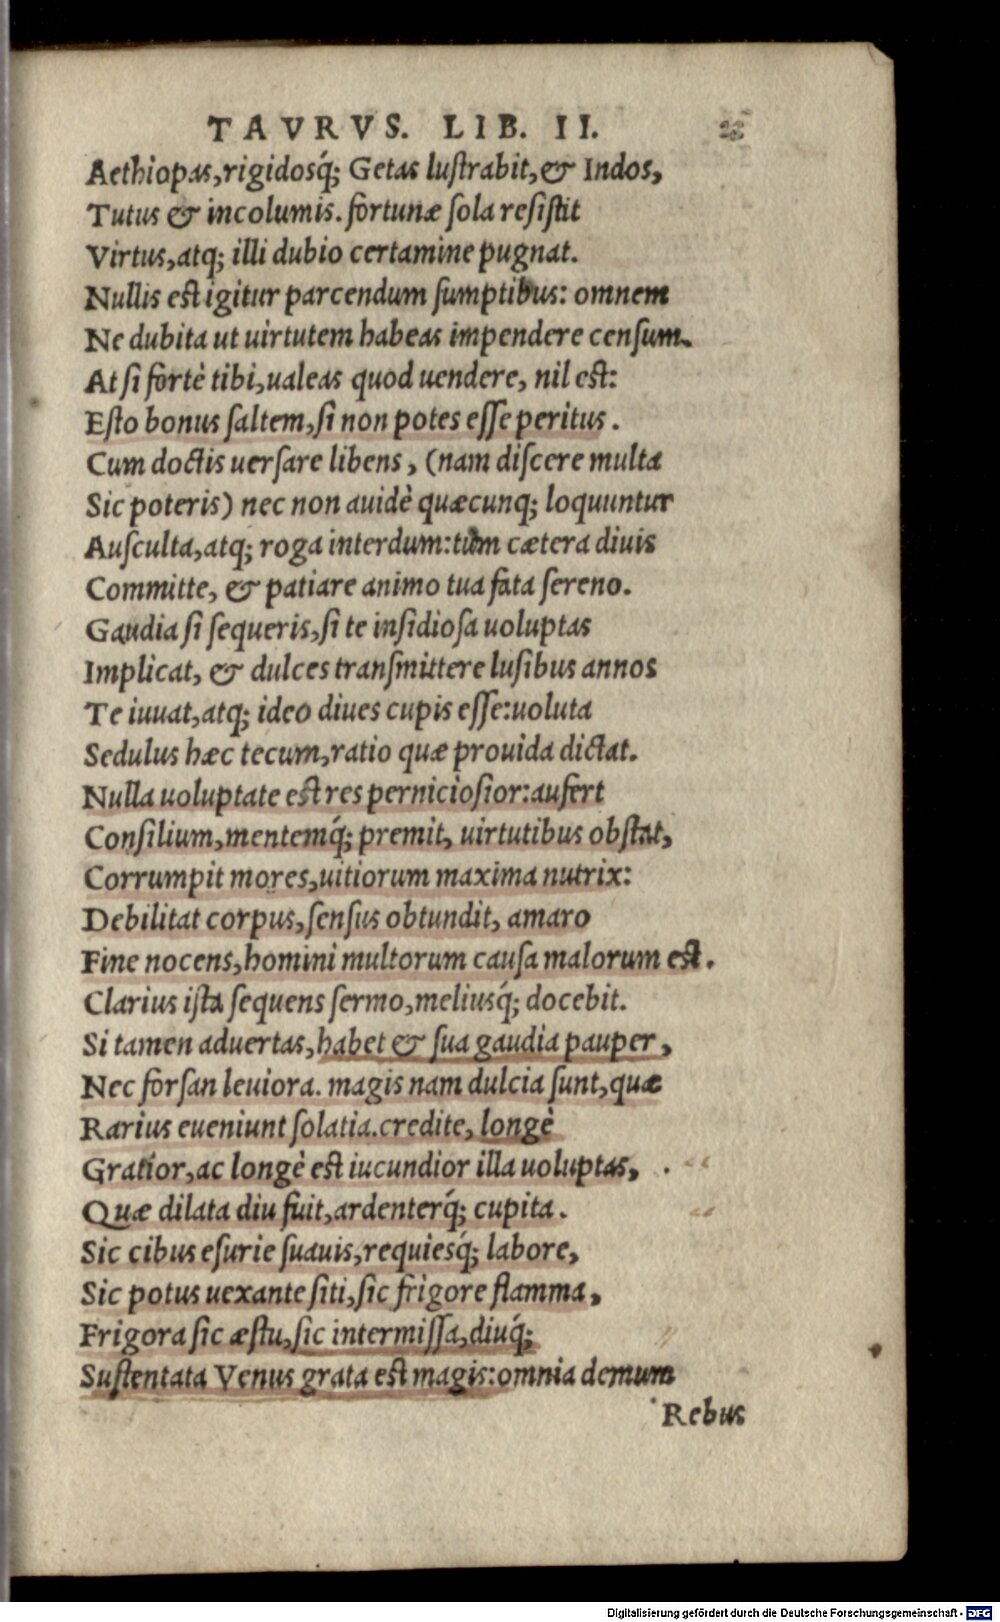 TAVRVS. LIB. II. 22
Aethiopas, rigidosq́; Getas lustrabit, & Indos,
Tutus & incolumis. fortunæ sola resistit
Virtus, atq; illi dubio certamine pugnat.
Nullis est igitur parcendum sumptibus: omnem
Ne dubita ut uirtutem habeas impendere censum.
At si fortè tibi, ualeas quod uendere, nil est:
Esto bonus saltem, si non potes esse peritus.
Cum doctis uersare libens, (nam discere multa
Sic poteris) nec non auidè quæcunq; loquuntur
Ausculta, atq; roga interdum: tum cætera diuis
Committe, & patiare animo tua fata sereno.
Gaudia si sequeris, si te insidiosa uoluptas
Implicat, & dulces transmittere lusibus annos
Te iuuat, atq; ideo diues cupis esse: uoluta
Sedulus hæc tecum, ratio quæ prouida dictat.
Nulla uoluptate est res perniciosior: aufert
Consilium, mentemq́; premit, uirtutibus obstat,
Corrumpit mores, uitiorum maxima nutrix:
Debilitat corpus, sensus obtundit, amaro
Fine nocens, homini multorum causa malorum est.
Clarius ista sequens sermo, meliusq́; docebit.
Si tamen aduertas, habet & sua gaudia pauper,
Nec forsan leuiora. magis nam dulcia sunt, quæ
Rarius eueniunt solatia. credite, longè
Gratior, ac longè est iucundior illa uoluptas,
Quæ dilata diu fuit, ardenterq́; cupita.
Sic cibus esurie suauis, requiesq́; labore,
Sic potus uexante siti, sic frigore flamma,
Frigora sic æstu, sic intermissa, diuq́;
Sustentata Venus grata est magis: omnia demum
Rebus
Digitalisierung gefördert durch die Deutsche Forschungsgemeinschaft - DFG